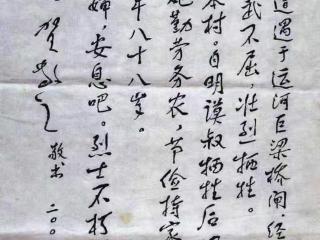 遭遇于运河巨梁桥闸,经
武不屈,壮烈牺牲。
本村。自明谟叔牺牲后,
她勤劳务农,节俭持家
年八十八岁。
婶,安息吧。烈士不朽
贺敬之 敬书 二〇〇